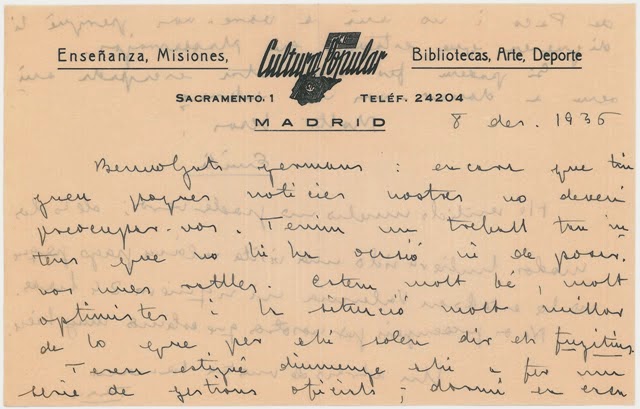 Enseñanza, Misiones, Cultura Popular Bibliotecas, Arte, Deporte
SACRAMENTO, 1 TELÉF. 24204
MADRID
8 des. 1936
Benvolguts germans: encara que tin
gueu poques notícies nostres no deveu
preocupar-vos. Tenim un treball tan in
tens que no hi ha ocasió ni de posar-
vos unes ratlles. Estem molt bé, molt
optimistes i la situació molt millor
de lo que per ahí solen dir els fugitius.
Teresa estigué diumenge ahí a fer una
serie de gestions oficials; dormí en casa